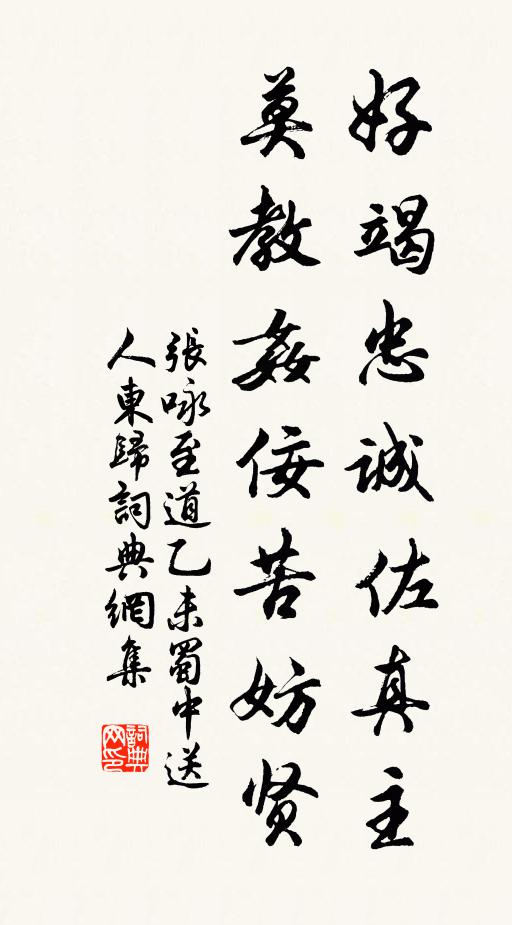 好竭忠誠佐真主
莫教姦佞苦妨贤
張咏至道乙未蜀中送
人東歸詞典網集
詞典
网印